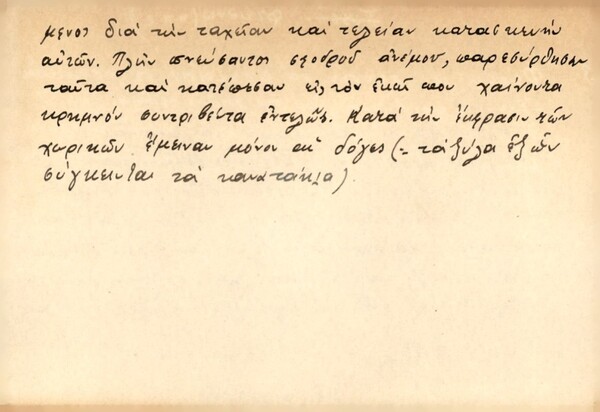 μενος διά τήν ταχεῖαν καί τελείαν κατασκευήν
αὐτῶν. Πλήν πνεύσαντος σφοδροῦ ἀνέμου, παρεσύρθησαν
ταῦτα καί κατέπεσαν εἰς τόν ἐκεῖ που χαίνοντα
κρημνόν συντριβέντα ἐντελῶς. Κατά τήν ἔκφρασιν τῶν
χωρικῶν ἔμειναν μόνον αἱ δόγες (= τά ξύλα ἐξ ὧν
σύγκεινται τά καυκάκια).